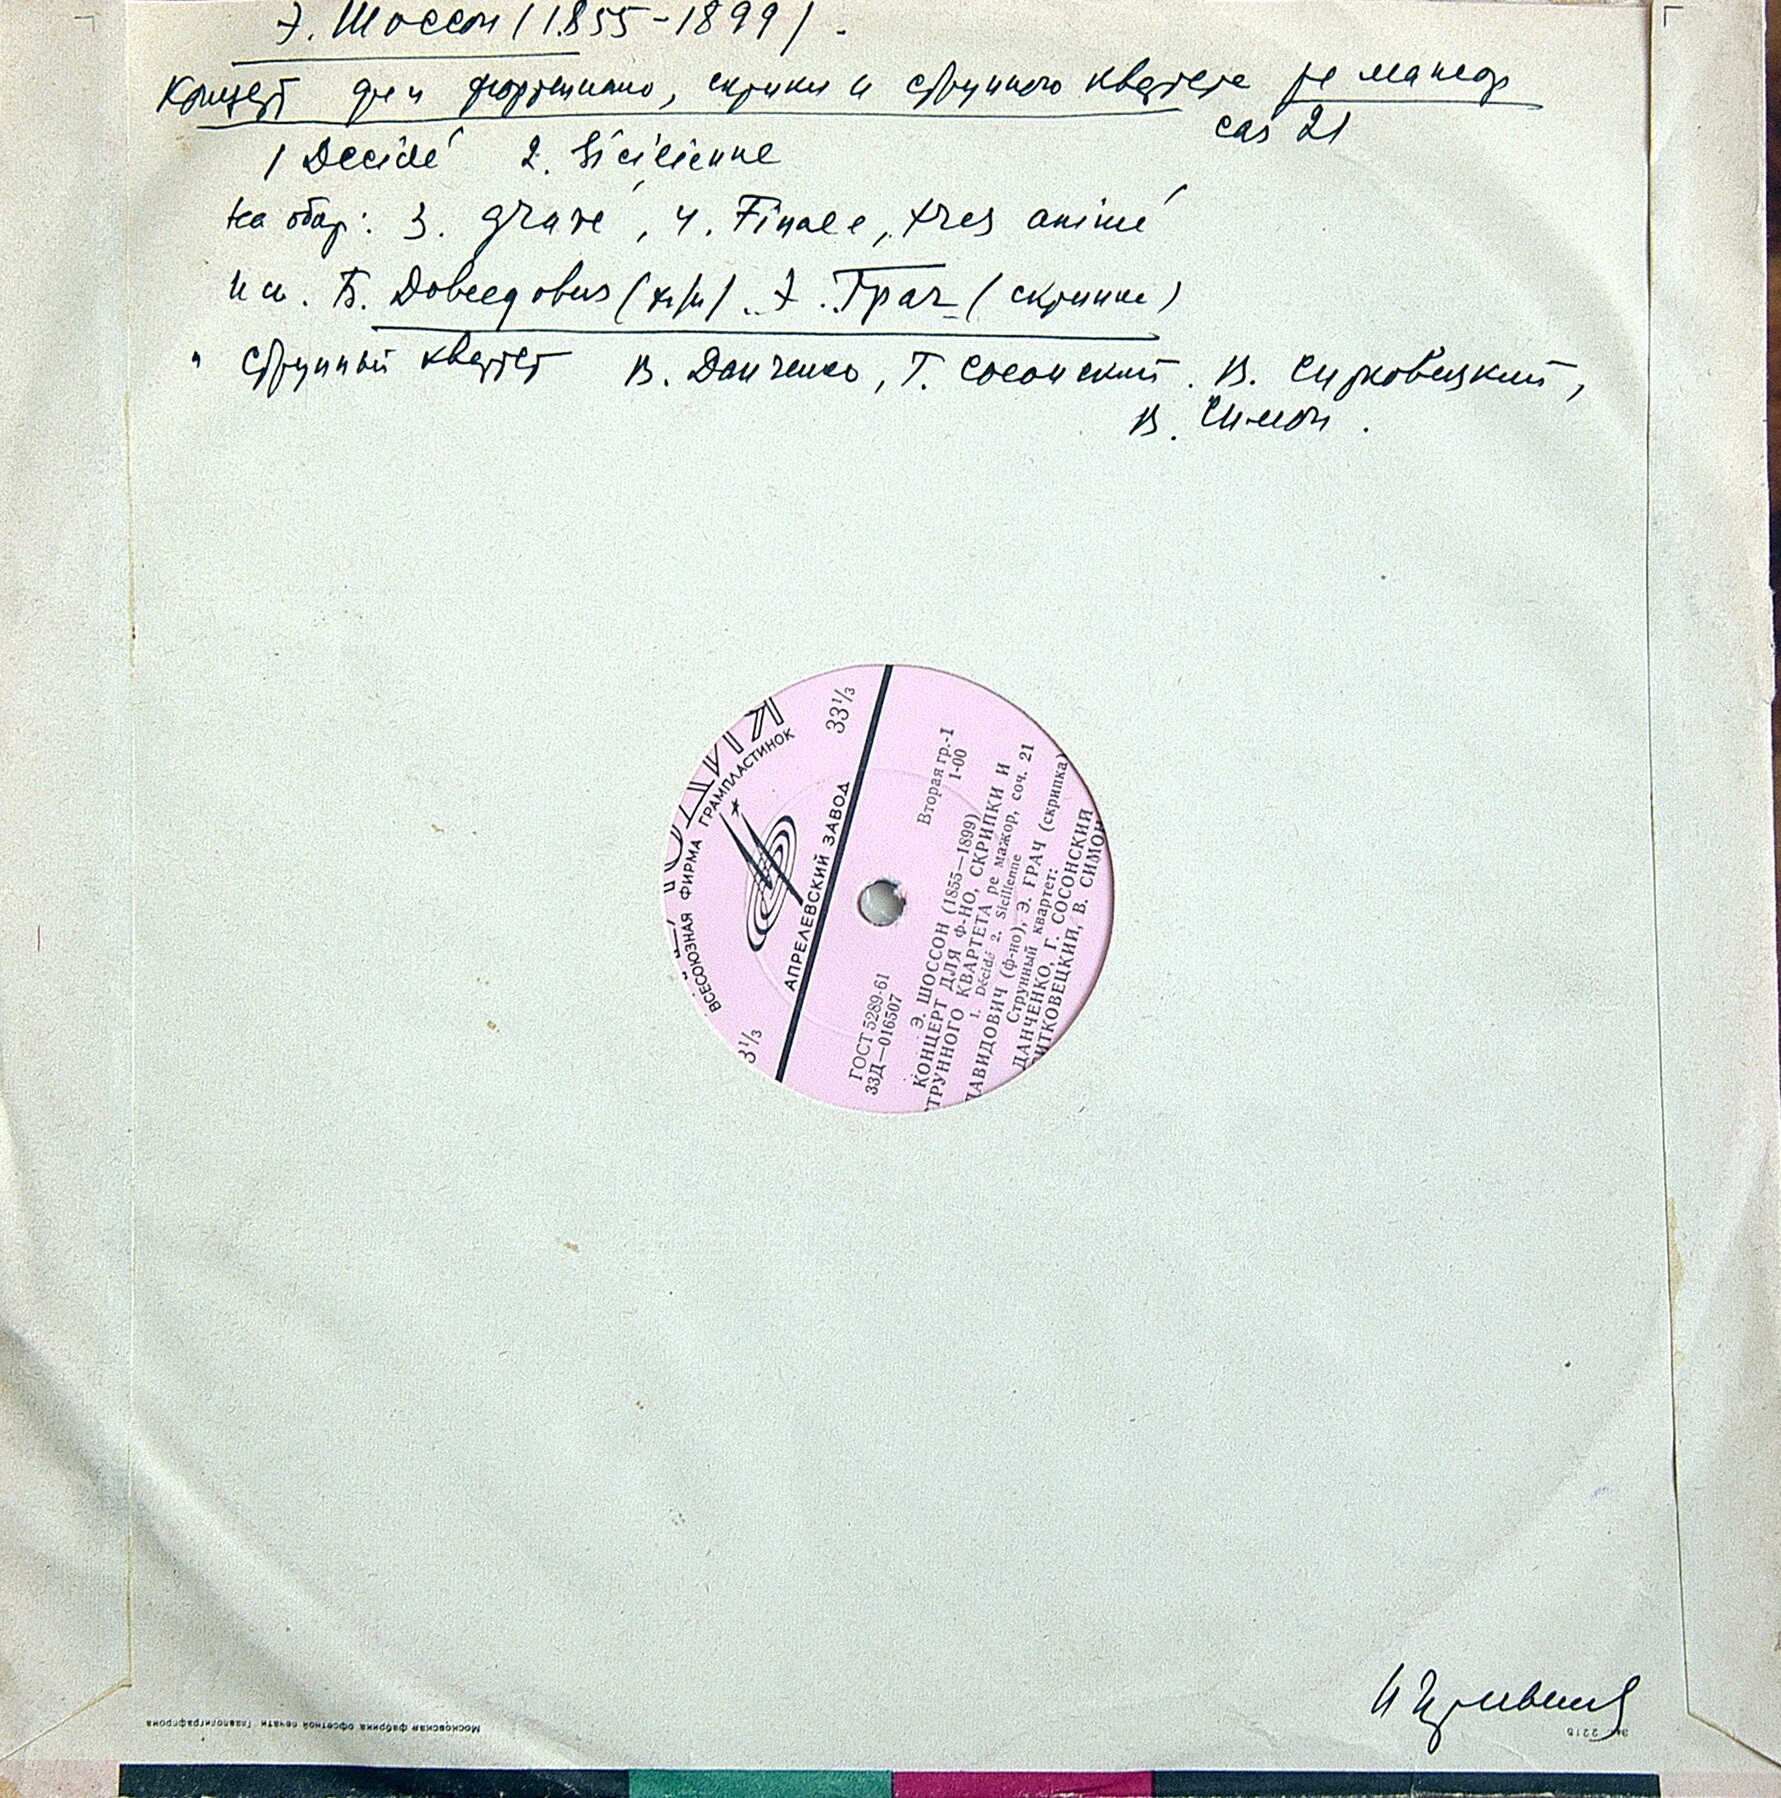 Э. Шоссон (1855-1899).
Концерт для фортепиано, скрипки и струнного квартета ре мажор
соч 21
1 Decidé 2. Sicilienne
На обор: 3. Gravé, 4. Finale, très animé
Исп. Б. Давидович (ф/п). Э. Грач (скрипка)
" струнный квартет В. Данченко, Г. Сосонский. В. Ситковецкий,
В. Симон.
33⅓
ВСЕСОЮЗНАЯ ФИРМА ГРАМПЛАСТИНОК
АПРЕЛЕВСКИЙ ЗАВОД
3⅓
ГОСТ 5289-61
33Д—016507
Вторая гр.-1
1-00
Э. ШОССОН (1855—1899)
КОНЦЕРТ ДЛЯ Ф-НО, СКРИПКИ И
ТРУННОГО КВАРТЕТА ре мажор, соч. 21
1. Décidé 2. Sicilienne
ДАВИДОВИЧ (ф-но), Э. ГРАЧ (скрипка)
Струнный квартет:
ДАНЧЕНКО, Г. СОСОНСКИЙ
ИТКОВЕЦКИЙ, В. СИМОН
Московская фабрика офсетной печати Главполиграфпрома
Зак. 2218